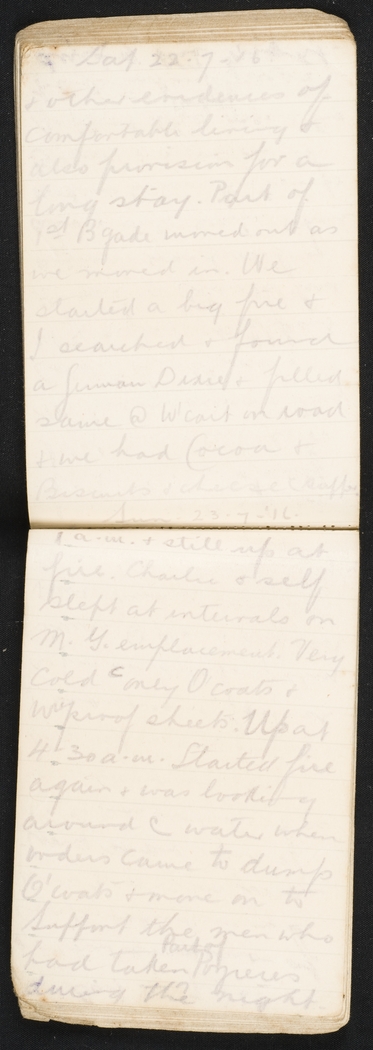 Sat 22-7-16
& other evidences of
comfortable living &
also provision for a
long stay. Part of
1st B'gade moved out as
we moved in. We
started a big fire &
I searched & found
a German Dixie & filled
same @ W'cart on road
& we had Cocoa &
Biscuits & cheese
Sun 23-7-'16.
1 a.m. & still up at
fire. Charlie & self
slept at intervals on
M. G. emplacement. Very
cold c only O'coats &
W'proof sheets. Up at
4.30 a.m. Started fire
again & was looking
around c water when
orders came to dump
O'coats & move on to
support the men who
had taken Part of Pozieres
during the night.